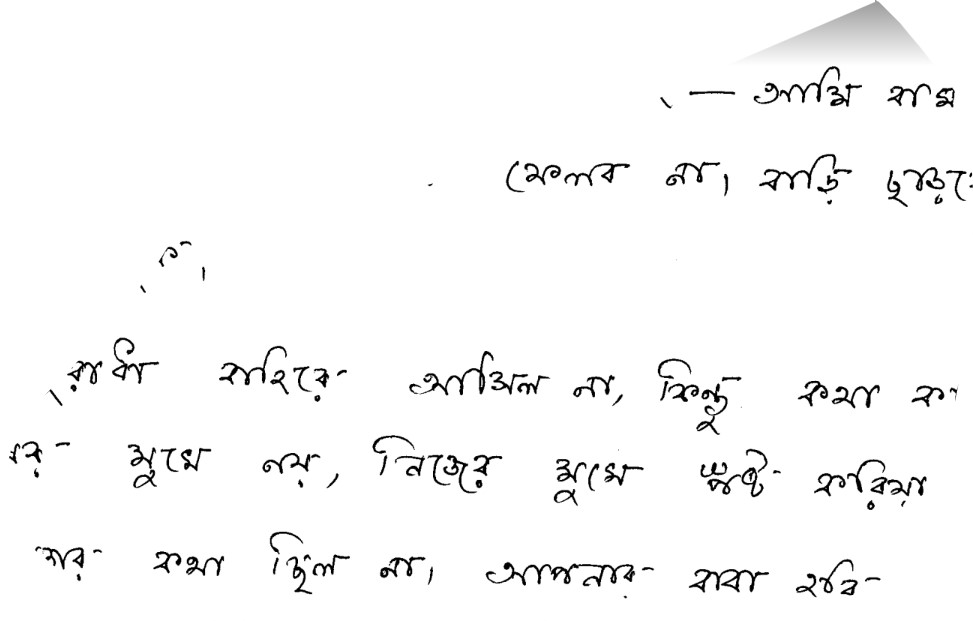 — আমি বাস
ফেলব না। বাড়ি ছাড়তে
রাধা বাহিরে আসিল না, কিন্তু কথা
মুখে নয়, নিজের মুখে স্পষ্ট করিয়া
কথা ছিল না। আপনার বাবা হবি